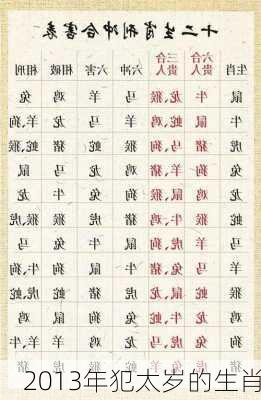 十二生肖刑冲合害表
生肖 六合贵人 三合贵人 六冲 六害 相破 相刑
鼠 牛 龙、猴 马 羊 鸡 兔
牛 鼠 蛇、鸡 羊 马 龙 狗、羊
虎 猪 马、狗 猴 蛇 猪 蛇、猴
兔 狗 羊、猪 鸡 龙 马 鼠
龙 鸡 鼠、猴 狗 兔 牛 龙
蛇 猴 牛、鸡 猪 虎 猴 虎、猴
马 羊 虎、狗 鼠 牛 兔 马
羊 马 兔、猪 牛 鼠 狗 牛、狗
猴 蛇 鼠、龙 虎 猪 蛇 虎、蛇
鸡 龙 牛、蛇 兔 狗 鼠 鸡
狗 兔 虎、马 龙 鸡 羊 牛、羊
2013年犯太岁的生肖